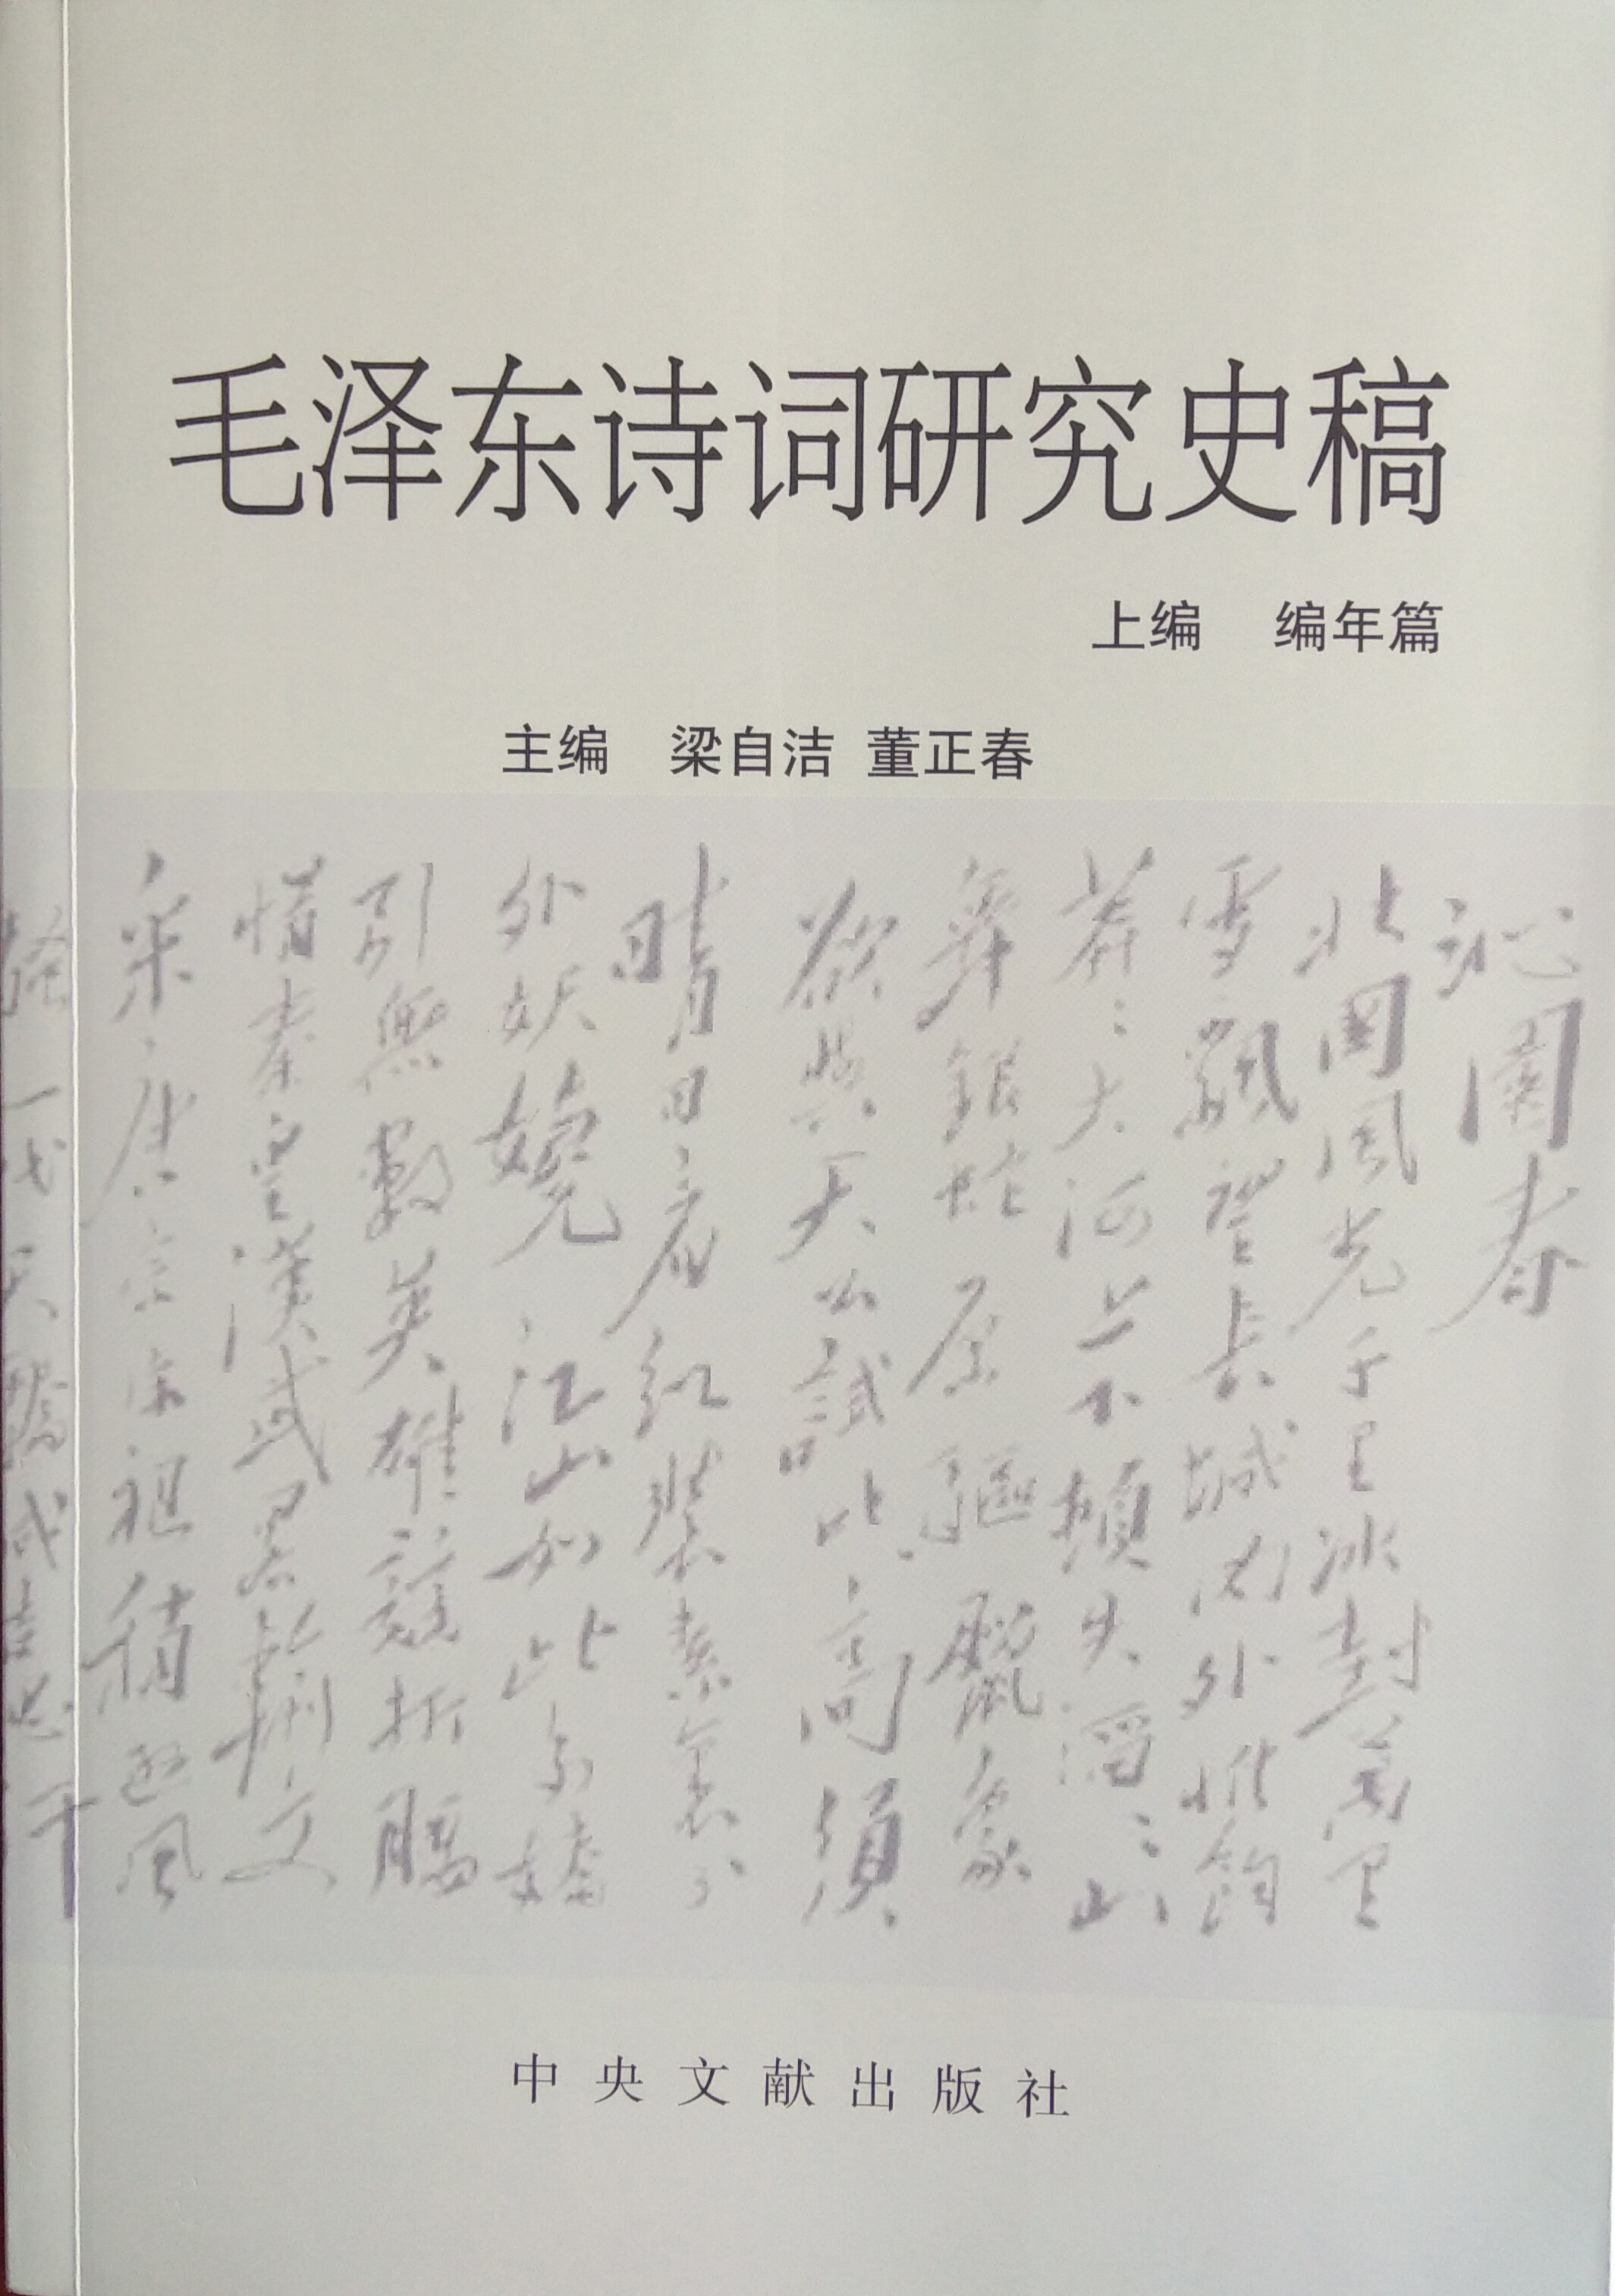 毛泽东诗词研究史稿
上编 编年篇
主编 梁自洁 董正春
沁園春
北國風光千里冰封萬里
雪飄望長城內外惟餘
莽〻大河上下頓失滔〻山
舞銀蛇原驅臘象
欲與天公試比高須
晴日看紅裝素裹分
外妖嬈江山如此多嬌
引無數英雄競折腰
惜秦皇漢武略輸文
采唐宗宋祖稍遜風
騷一代天驕成吉思汗
中央文献出版社